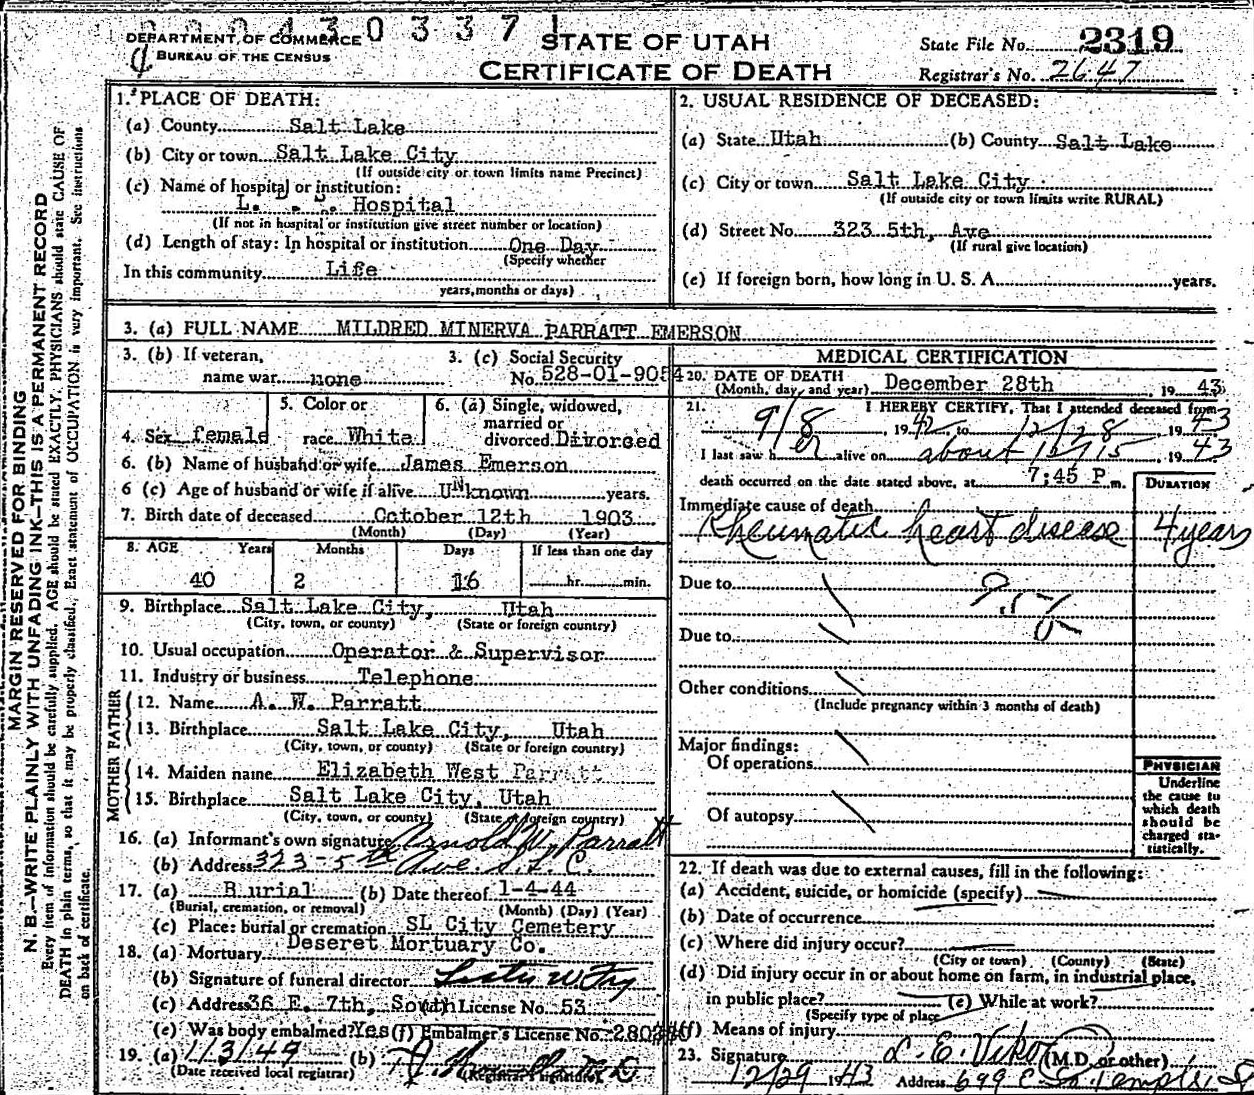 2 2 0 4 3 0 3 3 7 1
DEPARTMENT OF COMMERCE
BUREAU OF THE CENSUS
STATE OF UTAH
CERTIFICATE OF DEATH
State File No. 2319
Registrar's No. 2647
MARGIN RESERVED FOR BINDING
N. B.—WRITE PLAINLY WITH UNFADING INK—THIS IS A PERMANENT RECORD
Every item of information should be carefully supplied. AGE should be stated EXACTLY. PHYSICIANS should state CAUSE OF
DEATH in plain terms, so that it may be properly classified. Exact statement of OCCUPATION is very important. See instructions
on back of certificate.
1. PLACE OF DEATH:
(a) County Salt Lake
(b) City or town Salt Lake City
(If outside city or town limits name Precinct)
(c) Name of hospital or institution:
L. D. S. Hospital
(If not in hospital or institution give street number or location)
(d) Length of stay: In hospital or institution One Day
(Specify whether
In this community Life
years, months or days)
2. USUAL RESIDENCE OF DECEASED:
(a) State Utah (b) County Salt Lake
(c) City or town Salt Lake City
(If outside city or town limits write RURAL)
(d) Street No. 323 5th, Ave
(If rural give location)
(e) If foreign born, how long in U. S. A. years.
3. (a) FULL NAME MILDRED MINERVA PARRATT EMERSON
3. (b) If veteran,
name war none
3. (c) Social Security
No. 528-01-9054
4. Sex female
5. Color or
race White
6. (a) Single, widowed,
married or
divorced Divorced
6. (b) Name of husband or wife James Emerson
6 (c) Age of husband or wife if alive Unknown years.
7. Birth date of deceased October 12th 1903
(Month) (Day) (Year)
8. AGE Years Months Days If less than one day
40 2 16 hr. min.
9. Birthplace Salt Lake City, Utah
(City, town, or county) (State or foreign country)
10. Usual occupation Operator & Supervisor
11. Industry or business Telephone
FATHER
12. Name A. W. Parratt
13. Birthplace Salt Lake City, Utah
(City, town, or county) (State or foreign country)
MOTHER
14. Maiden name Elizabeth West Parratt
15. Birthplace Salt Lake City, Utah
(City, town, or county) (State or foreign country)
16. (a) Informant's own signature Arnold W. Parratt
(b) Address 323-5th Ave S.L.C.
17. (a) Burial (b) Date thereof 1-4-44
(Burial, cremation, or removal) (Month) (Day) (Year)
(c) Place: burial or cremation SL City Cemetery
18. (a) Mortuary Deseret Mortuary Co.
(b) Signature of funeral director
(c) Address 36 E. 7th, South License No. 53
(e) Was body embalmed? Yes (f) Embalmer's License No.
19. (a) (b)
(Date received local registrar) (Registrar's signature)
MEDICAL CERTIFICATION
20. DATE OF DEATH
(Month, day, and year) December 28th 19 43
21. I HEREBY CERTIFY, That I attended deceased from
9/8 1942 to 12/28 1943
I last saw her alive on about 12/15 1943
death occurred on the date stated above, at 7:45 P m.
DURATION
Immediate cause of death
Rheumatic heart disease 4 years
Due to
Due to
Other conditions
(Include pregnancy within 3 months of death)
Major findings:
Of operations
Of autopsy
PHYSICIAN
Underline
the cause to
which death
should be
charged sta-
tistically.
22. If death was due to external causes, fill in the following:
(a) Accident, suicide, or homicide (specify)
(b) Date of occurrence
(c) Where did injury occur?
(City or town) (County) (State)
(d) Did injury occur in or about home on farm, in industrial place,
in public place? (e) While at work?
(Specify type of place
(f) Means of injury
23. Signature L. E. Viko (M.D. or other)
12/29 1943 Address 699 E. So. Temple